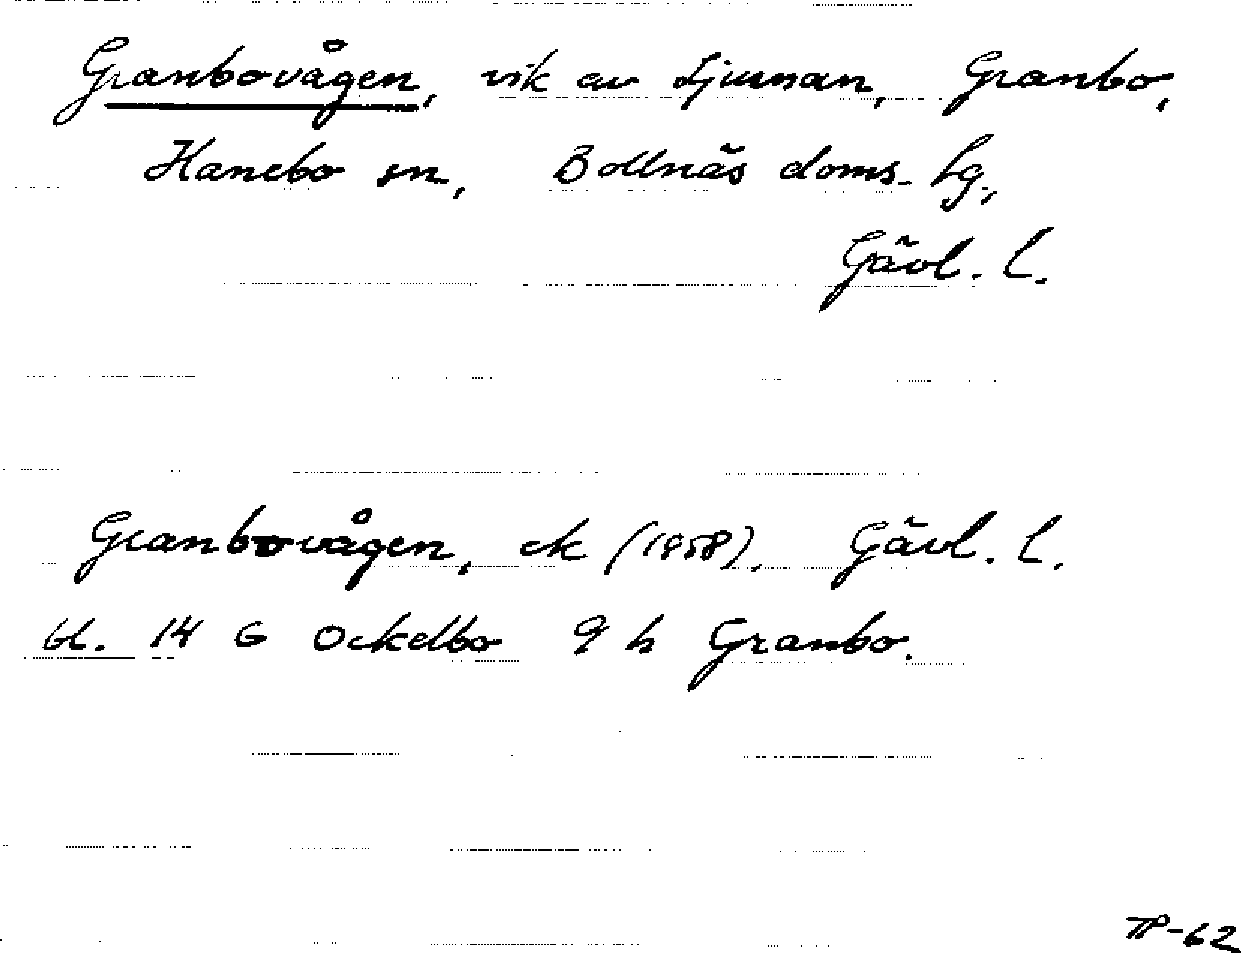 Granbovågen, vik av Ljusnan, Granbo,
Hanebo sn, Bollnäs doms. hg,
Gävl. l.
Granbovågen, ek (1958). Gävl. l.
bl. 14 G Ockelbo 9 h Granbo.
TP-62